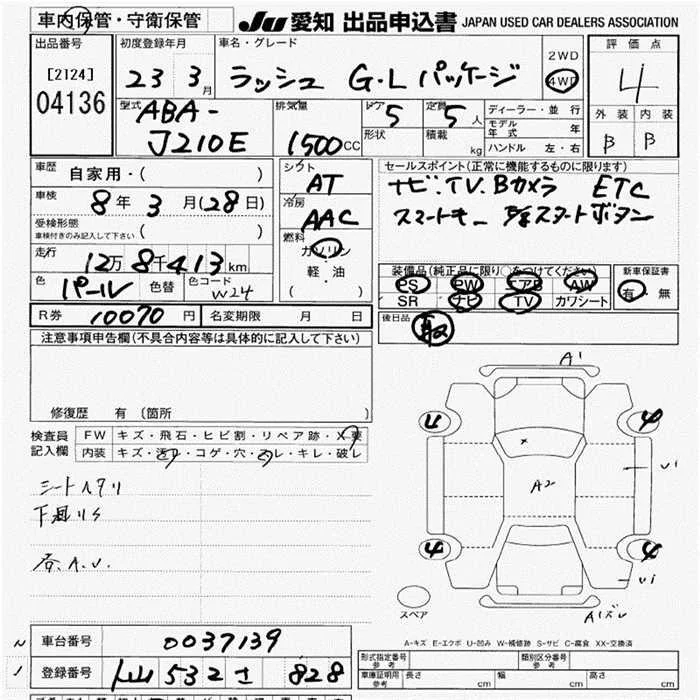 車内保管・守衛保管
JU 愛知 出品申込書 JAPAN USED CAR DEALERS ASSOCIATION
出品番号 初度登録年月 車名・グレード 評価点
[2124] 04136
23 3月 ラッシュ G・L パッケージ
2WD 4WD
4
型式 ABA- J210E
排気量 1500CC
ドア 5 定員 5人
形状 積載 kg
ディーラー・並行
モデル年式 年
ハンドル 左・右
外装 内装
B B
車歴 自家用・( )
車検 8年3月(28日)
受検形態 ( )
車検付きのみ記入して下さい
走行 12万8千413km
色 パール 色替 色コード W24
シフト AT
冷房 AAC
燃料 ガソリン
軽・油
( )
セールスポイント(正常に機能するものに限ります)
ナビ.TV.Bカメラ ETC
スマートキー スタートボタン
装備品(純正品に限り○をつけてください) 新車保証書
PS PW エアB AW 有・無
SR ナビ TV カワシート
後日品 取
R券 10070円 名変期限 月 日
注意事項申告欄(不具合内容等は具体的に記入して下さい)
修復歴 有(箇所 )
検査員記入欄 FW キズ・飛石・ヒビ割・リペア跡・X要
内装 キズ・汚れ・コゲ・穴・スレ・キレ・破レ
シートヘタリ
下廻りS
A1
A2
U1
U1
A1ズレ
スペア
A-キズ E-エクボ U-凹み W-補修跡 S-サビ C-腐食 XX-交換済
車台番号 0037139
登録番号 532 さ 828
形式指定番号 参考 類別区分番号 参考
車庫証明用 参考 長さ cm 幅 cm 高さ cm